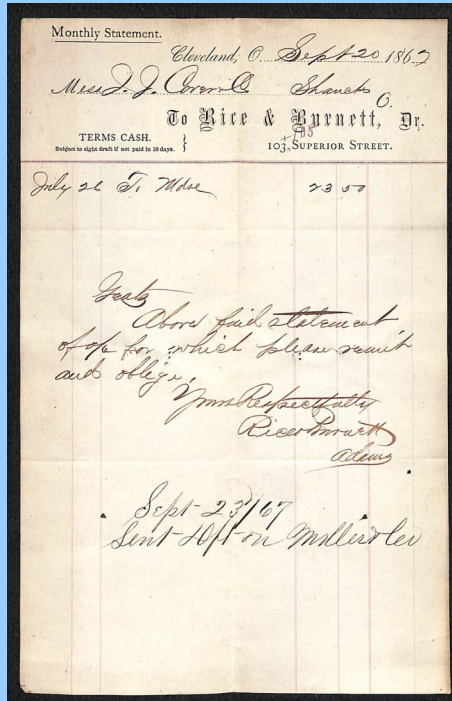 Monthly Statement.
Cleveland, O. Sept 20 1867
Mess J. J. Cover & Co Shauck
O.
To Rice & Burnett, Dr.
TERMS CASH.
Subject to sight draft if not paid in 10 days.
103 + 105 SUPERIOR STREET.
July 26 To Mdse 23 50
Gents
Above find statement
of a/c for which please remit
and oblige,
Yours Respectfully
Rice & Burnett
Sept 23/67
Sent Dft on